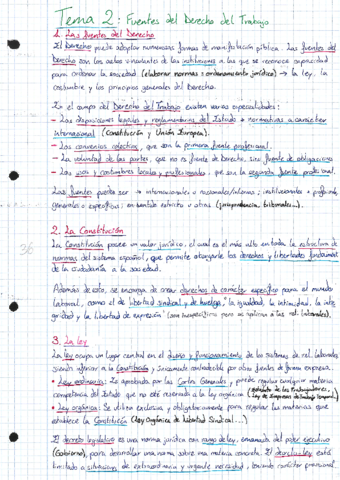 Tema 2: Fuentes del Derecho del Trabajo
1. Las fuentes del Derecho
El Derecho puede adoptar numerosas formas de manifestación pública. Las fuentes del
Derecho son los actos vinculantes de las instituciones a las que se reconoce capacidad
para ordenar la sociedad (elaborar normas = ordenamiento jurídico) → la ley, la
costumbre y los principios generales del Derecho.
En el campo del Derecho del Trabajo existen varias especialidades:
- Las disposiciones legales y reglamentarias del Estado + normativas a carácter
internacional (Constitución y Unión Europea).
- Los convenios colectivos, que son la primera fuente profesional.
- La voluntad de las partes, que no es fuente de Derecho, sino fuente de obligaciones
- Los usos y costumbres locales y profesionales, que son la segunda fuente profesional.
Las fuentes pueden ser → internacionales o nacionales/internas; institucionales o profesionales;
generales o específicas; en sentido estricto u otras (jurisprudencia, tribunales...).
36
2. La Constitución
La Constitución posee un valor jurídico, el cual es el más alto en toda la estructura de
normas del sistema español, que permite otorgarle los derechos y libertades fundament
de la ciudadanía a la sociedad.
Además de esto, se encarga de crear derechos de carácter específico para el mundo
laboral, como el de libertad sindical y de huelga, la igualdad, la intimidad, la inte
gridad y la libertad de expresión (son inespecíficos pero se aplican a las rel. laborales).
3. La ley
La ley ocupa un lugar central en el diseño y funcionamiento de los sistemas de rel. laborales
siendo inferior a la Constitución y únicamente contradecible por otras fuentes de forma expresa.
• Ley ordinaria: Es aprobada por las Cortes Generales, y puede regular cualquier materia
competencia del Estado que no esté reservada a la ley orgánica (Estatuto de los Trabajadores,
Ley de Empresas de Trabajo Temporal...)
• Ley orgánica: Se utiliza exclusiva y obligatoriamente para regular las materias que
establece la Constitución (Ley Orgánica de Libertad Sindical...)
El decreto legislativo es una norma jurídica con rango de ley, emanada del poder ejecutivo
(Gobierno), para desarrollar una norma sobre una materia concreta. El decreto-ley está
limitado a situaciones de extraordinaria y urgente necesidad, teniendo carácter provisional.